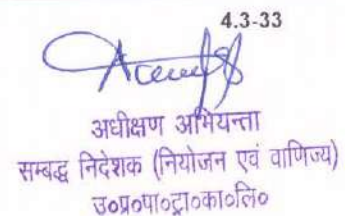 4.3-33
अधीक्षण अभियन्ता
सम्बद्ध निदेशक (नियोजन एवं वाणिज्य)
उ०प्र०पा०ट्रा०का०लि०